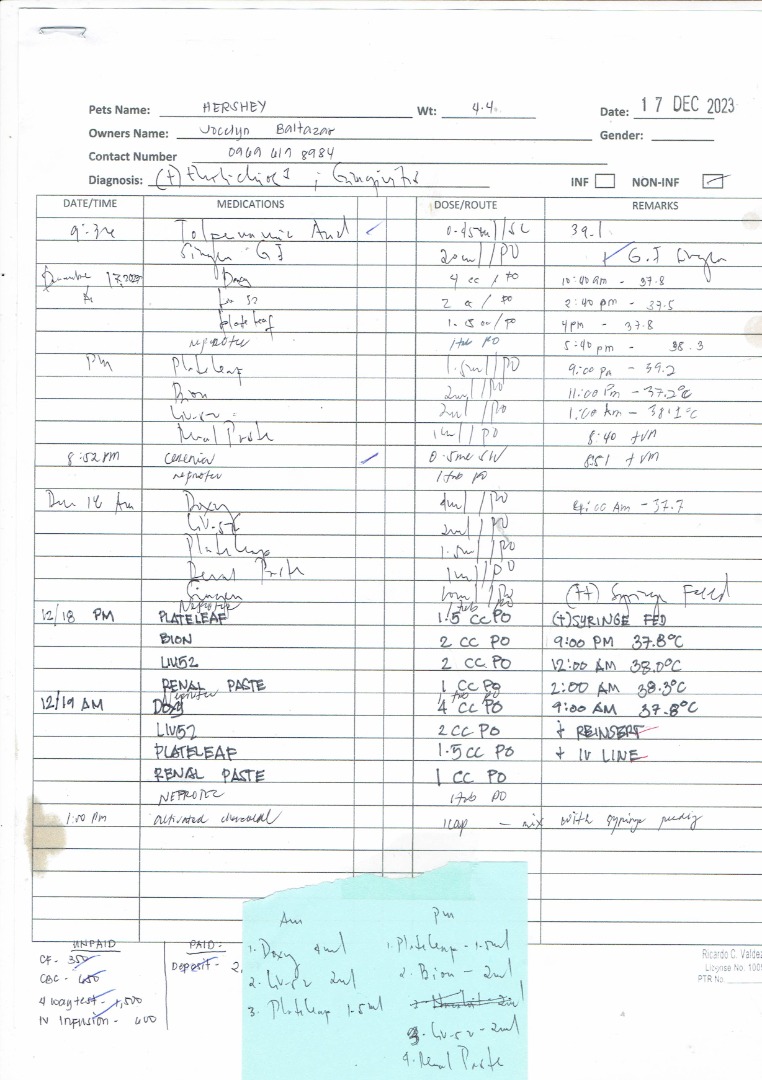 Pets Name: HERSHEY Wt: 4.4 Date: 17 DEC 2023
Owners Name: Jocelyn Baltazar Gender:
Contact Number 0969 617 8984
Diagnosis: (+) ; Gingivitis INF NON-INF ✓
DATE/TIME MEDICATIONS DOSE/ROUTE REMARKS
9:34 Acid ✓ 0.45ml/SC 39.1
GI 20ml/PO ✓ G.I
December 17, 2023 Doxy 4 cc / PO 10:40 am - 37.8
A Liv 52 2 cc / PO 2:40 pm - 37.5
plateleaf 1.5 cc/PO 4pm - 37.8
neprotec 1tab PO 5:40 pm - 38.3
Pm Plateleaf 1.5ml/PO 9:00 Pm - 39.2
Bion 2ml/PO 11:00 Pm - 37.2°C
Liv-52 2ml/PO 1:00 Am - 38.1°C
Renal Paste 1ml/PO 8:40 +VM
8:52 PM cerenia ✓ 0.5ml 8:51 +VM
neprotec 1tab PO
Dec 18 Am Doxy 4ml/PO 4:00 Am - 37.7
Liv-52 2ml/PO
Plateleaf 1.5ml/PO
Renal Paste 1ml/PO
10ml/PO (++) Syringe Feed
Neprotec 1tab PO
12/18 PM PLATELEAF 1.5 CC PO (+) SYRINGE FED
BION 2 CC PO 9:00 PM 37.8°C
LIV52 2 CC PO 12:00 AM 38.0°C
RENAL PASTE 1 CC PO 2:00 AM 38.3°C
neprotec 1tab PO
12/19 AM DOXY 4 CC PO 9:00 AM 37.8°C
LIV52 2 CC PO + REINSERT
PLATELEAF 1.5 CC PO + IV LINE
RENAL PASTE 1 CC PO
NEPROTEC 1tab PO
1:00 PM activated charcoal 1cap - mix with syringe feeding
UNPAID
CF - 350
CBC - 650
4 way test - 1,500
IV Infusion - 600
PAID:
Deposit - 2,
Am
1. Doxy 4ml
2. Liv-52 2ml
3. Plateleaf 1.5ml
Pm
1. Plateleaf - 1.5ml
2. Bion - 2ml
3. Liv-52 - 2ml
4. Renal Paste
Ricardo C. Valdez
License No: 1009
PTR No.